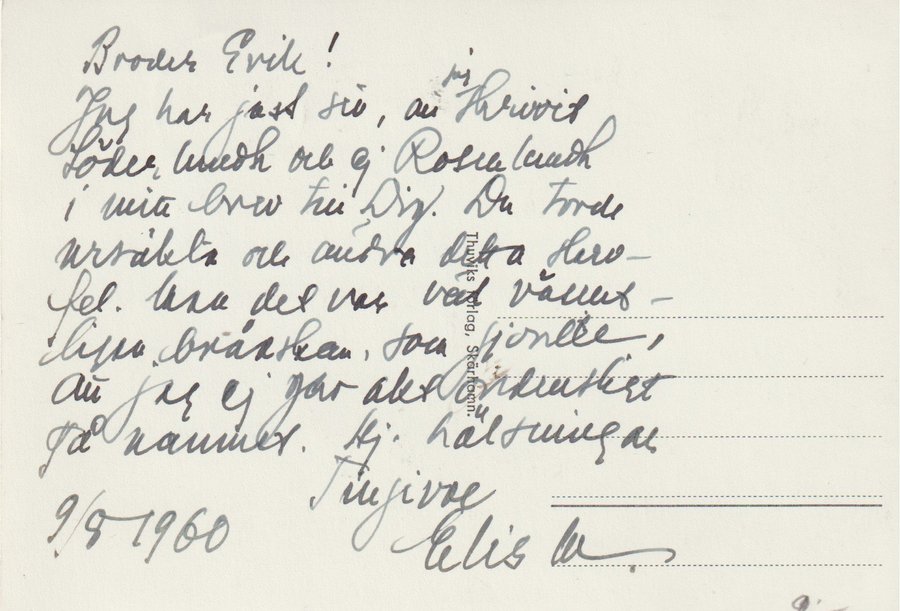 Broder Erik!
Jag har just sett, att jag skrivit
Söderlundh och ej Rosenlundh
i mitt brev till Dig. Du torde
ursäkta och ändra detta skriv-
fel. Men det var väl vännens-
brådskan, som gjorde,
att jag ej gav akt ordentligt
på namnet. Hj. hälsningar
Tillgivne
9/8 1960
Elis
Thuviks förlag, Skärhamn.